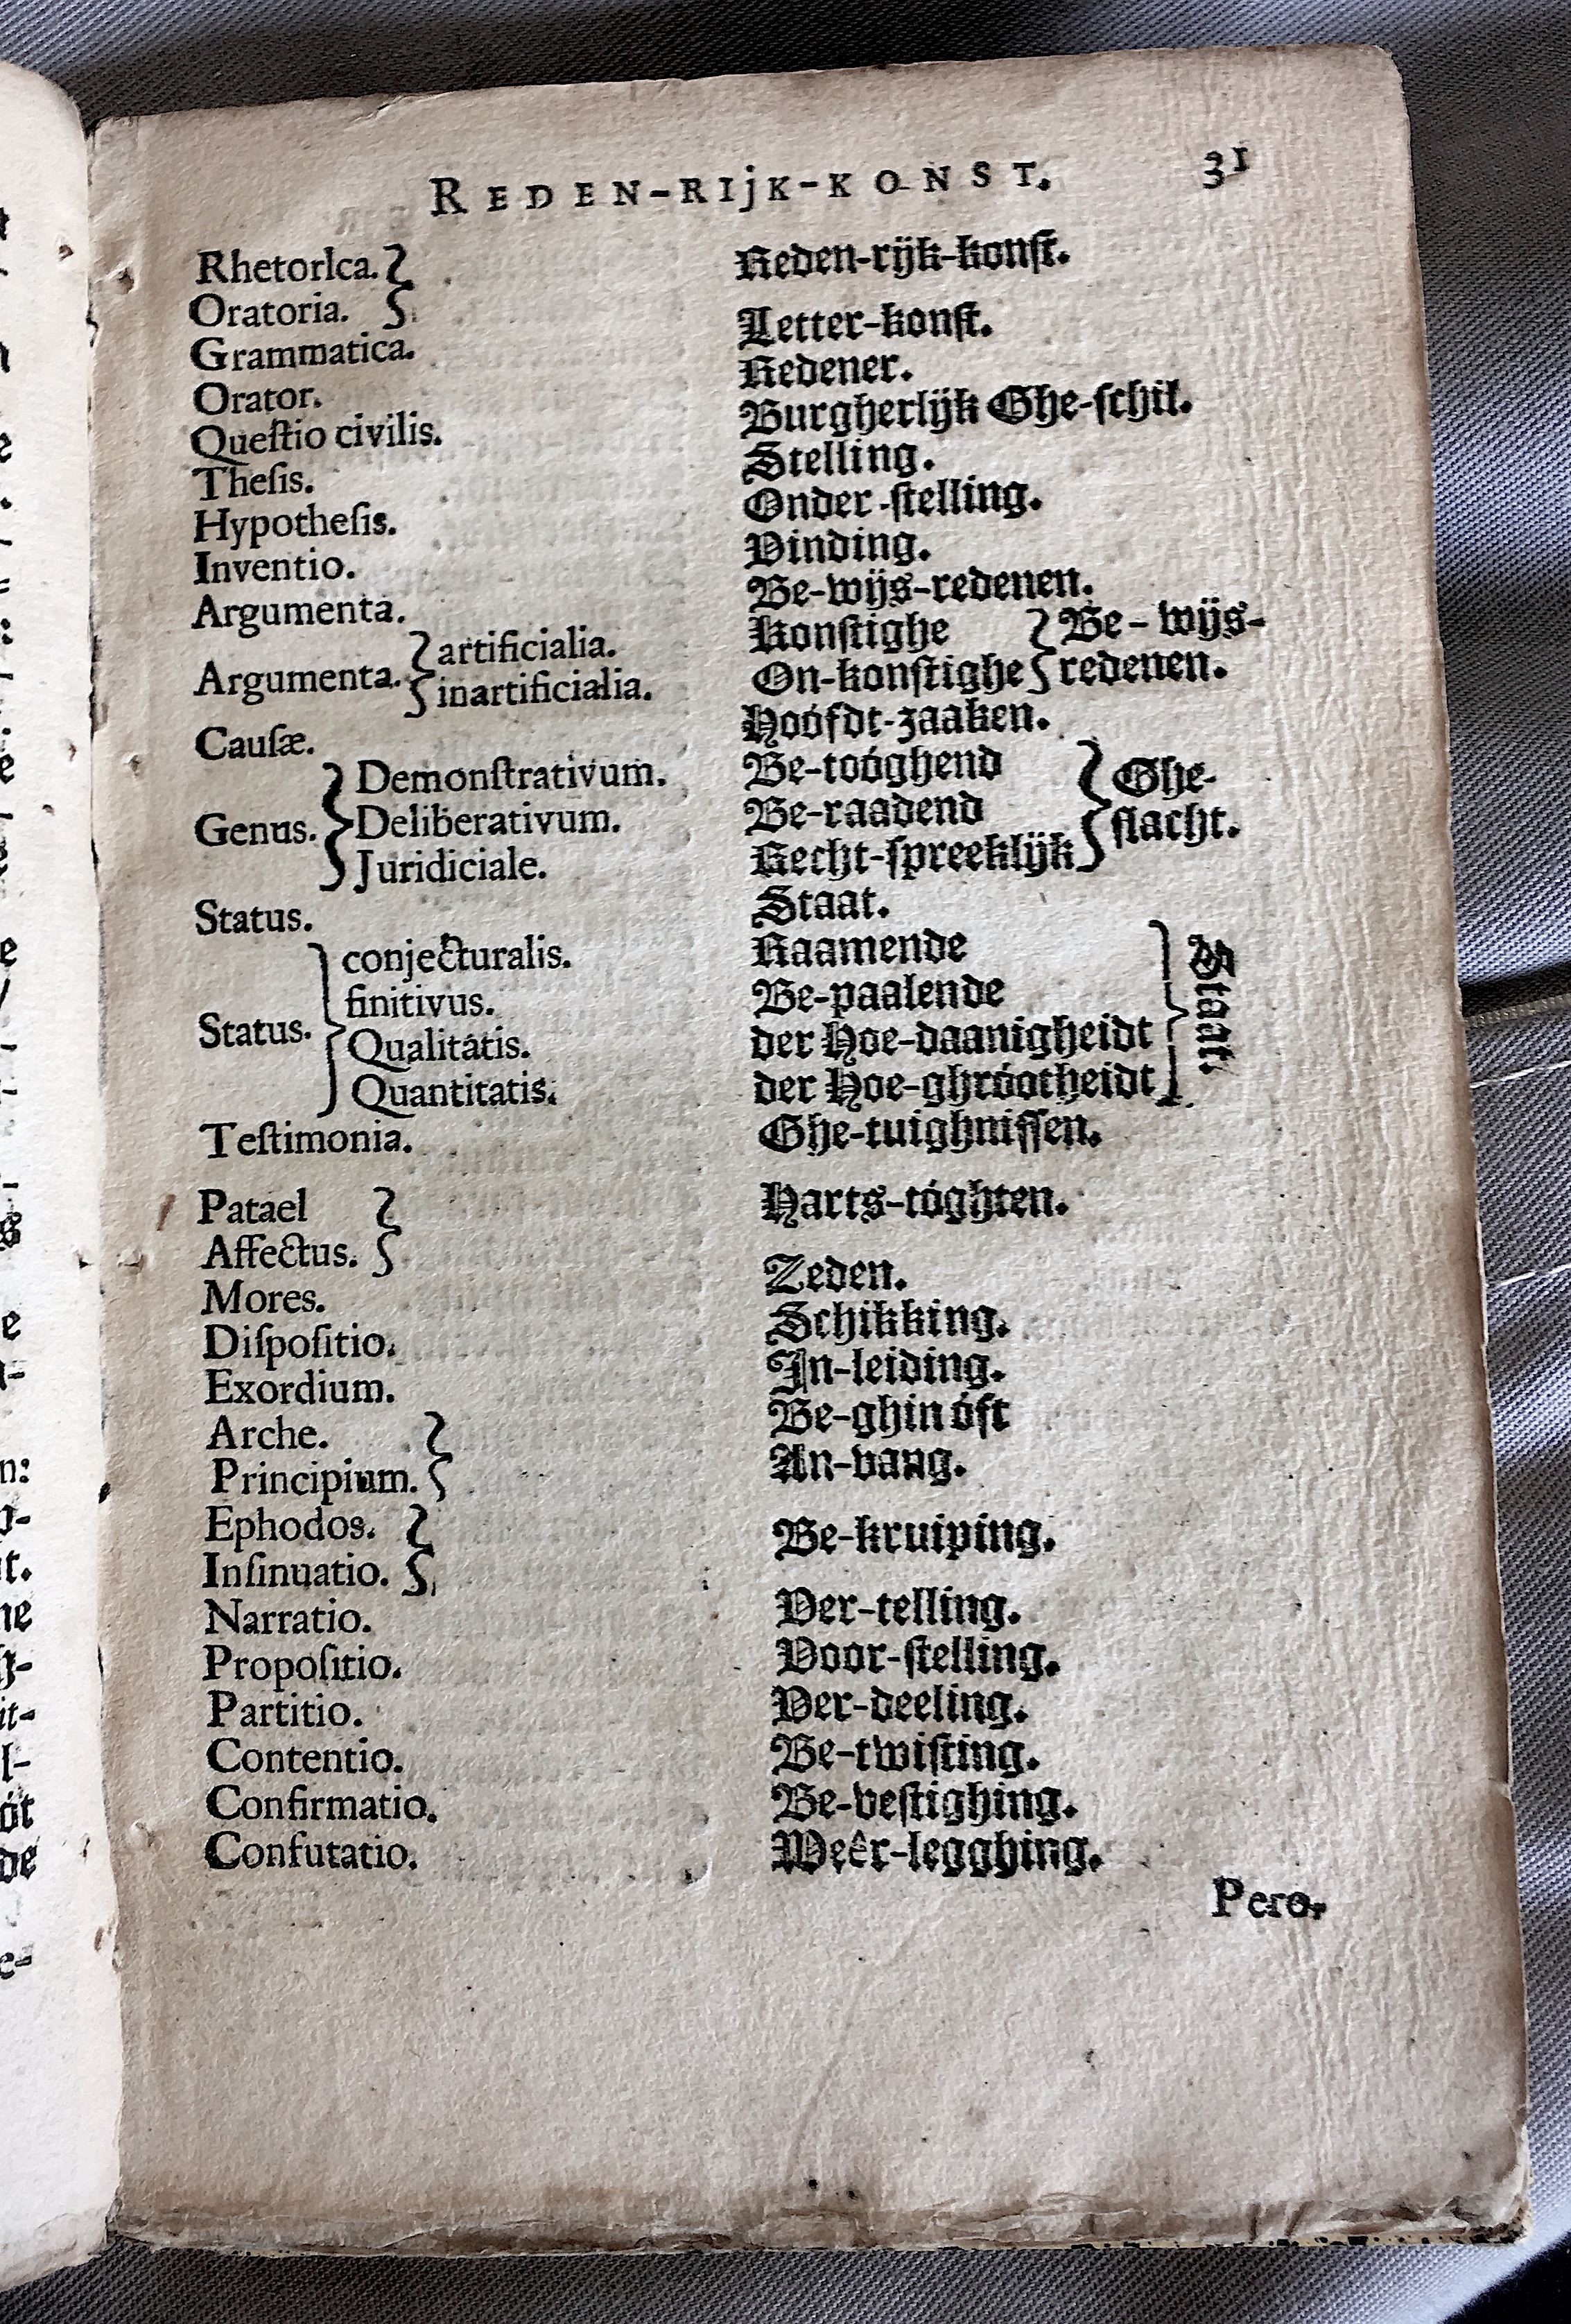 REDEN-RIjK-KONST. 31
Rhetorica. } Reden-rijk-konſt.
Oratoria. }
Grammatica. Letter-konſt.
Orator. Redener.
Queſtio civilis. Burgherlijk Ghe-ſchil.
Theſis. Stelling.
Hypotheſis. Onder-ſtelling.
Inventio. Vinding.
Argumenta. Be-wijs-redenen.
Argumenta. } artificialia. Konſtighe } Be-wijs-
inartificialia. On-konſtighe } redenen.
Cauſæ. Hoófdt-zaaken.
Genus. } Demonſtrativum. Be-toóghend } Ghe-
Deliberativum. Be-raadend } ſlacht.
Juridiciale. Recht-ſpreeklijk }
Status. Staat.
Status. } conjecturalis. Raamende } Staat.
finitivus. Be-paalende
Qualitátis. der Hoe-daanigheidt
Quantitatis. der Hoe-ghróotheidt
Teſtimonia. Ghe-tuighniſſen.
Patael } Harts-tóghten.
Affectus. }
Mores. Zeden.
Diſpoſitio. Schikking.
Exordium. In-leiding.
Arche. } Be-ghin óft
Principium. } An-vang.
Ephodos. } Be-kruiping.
Inſinuatio. }
Narratio. Ver-telling.
Propoſitio. Voor-ſtelling.
Partitio. Ver-deeling.
Contentio. Be-twiſting.
Confirmatio. Be-veſtighing.
Confutatio. Weêr-legghing.
Pero-